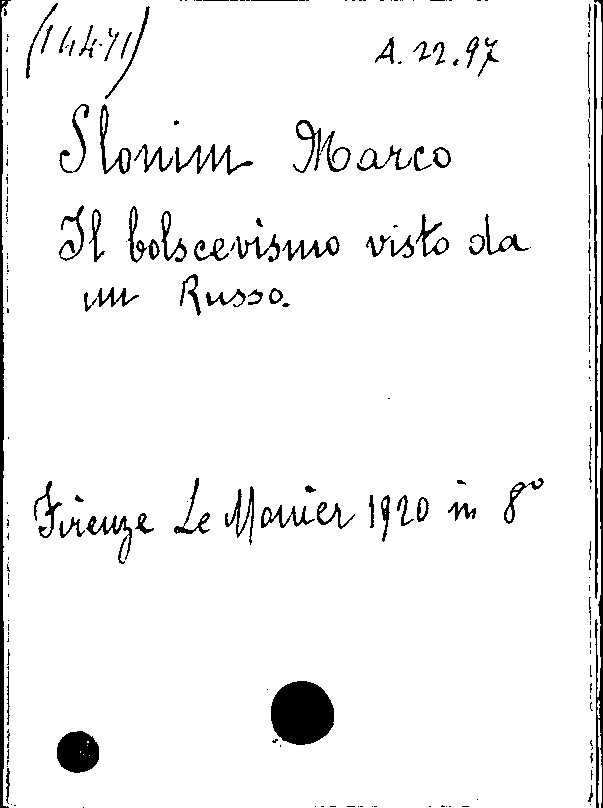 (14471) A. 22.97
Slonim Marco
Il bolscevismo visto da
un Russo.
Firenze Le Monier 1920 in 8°